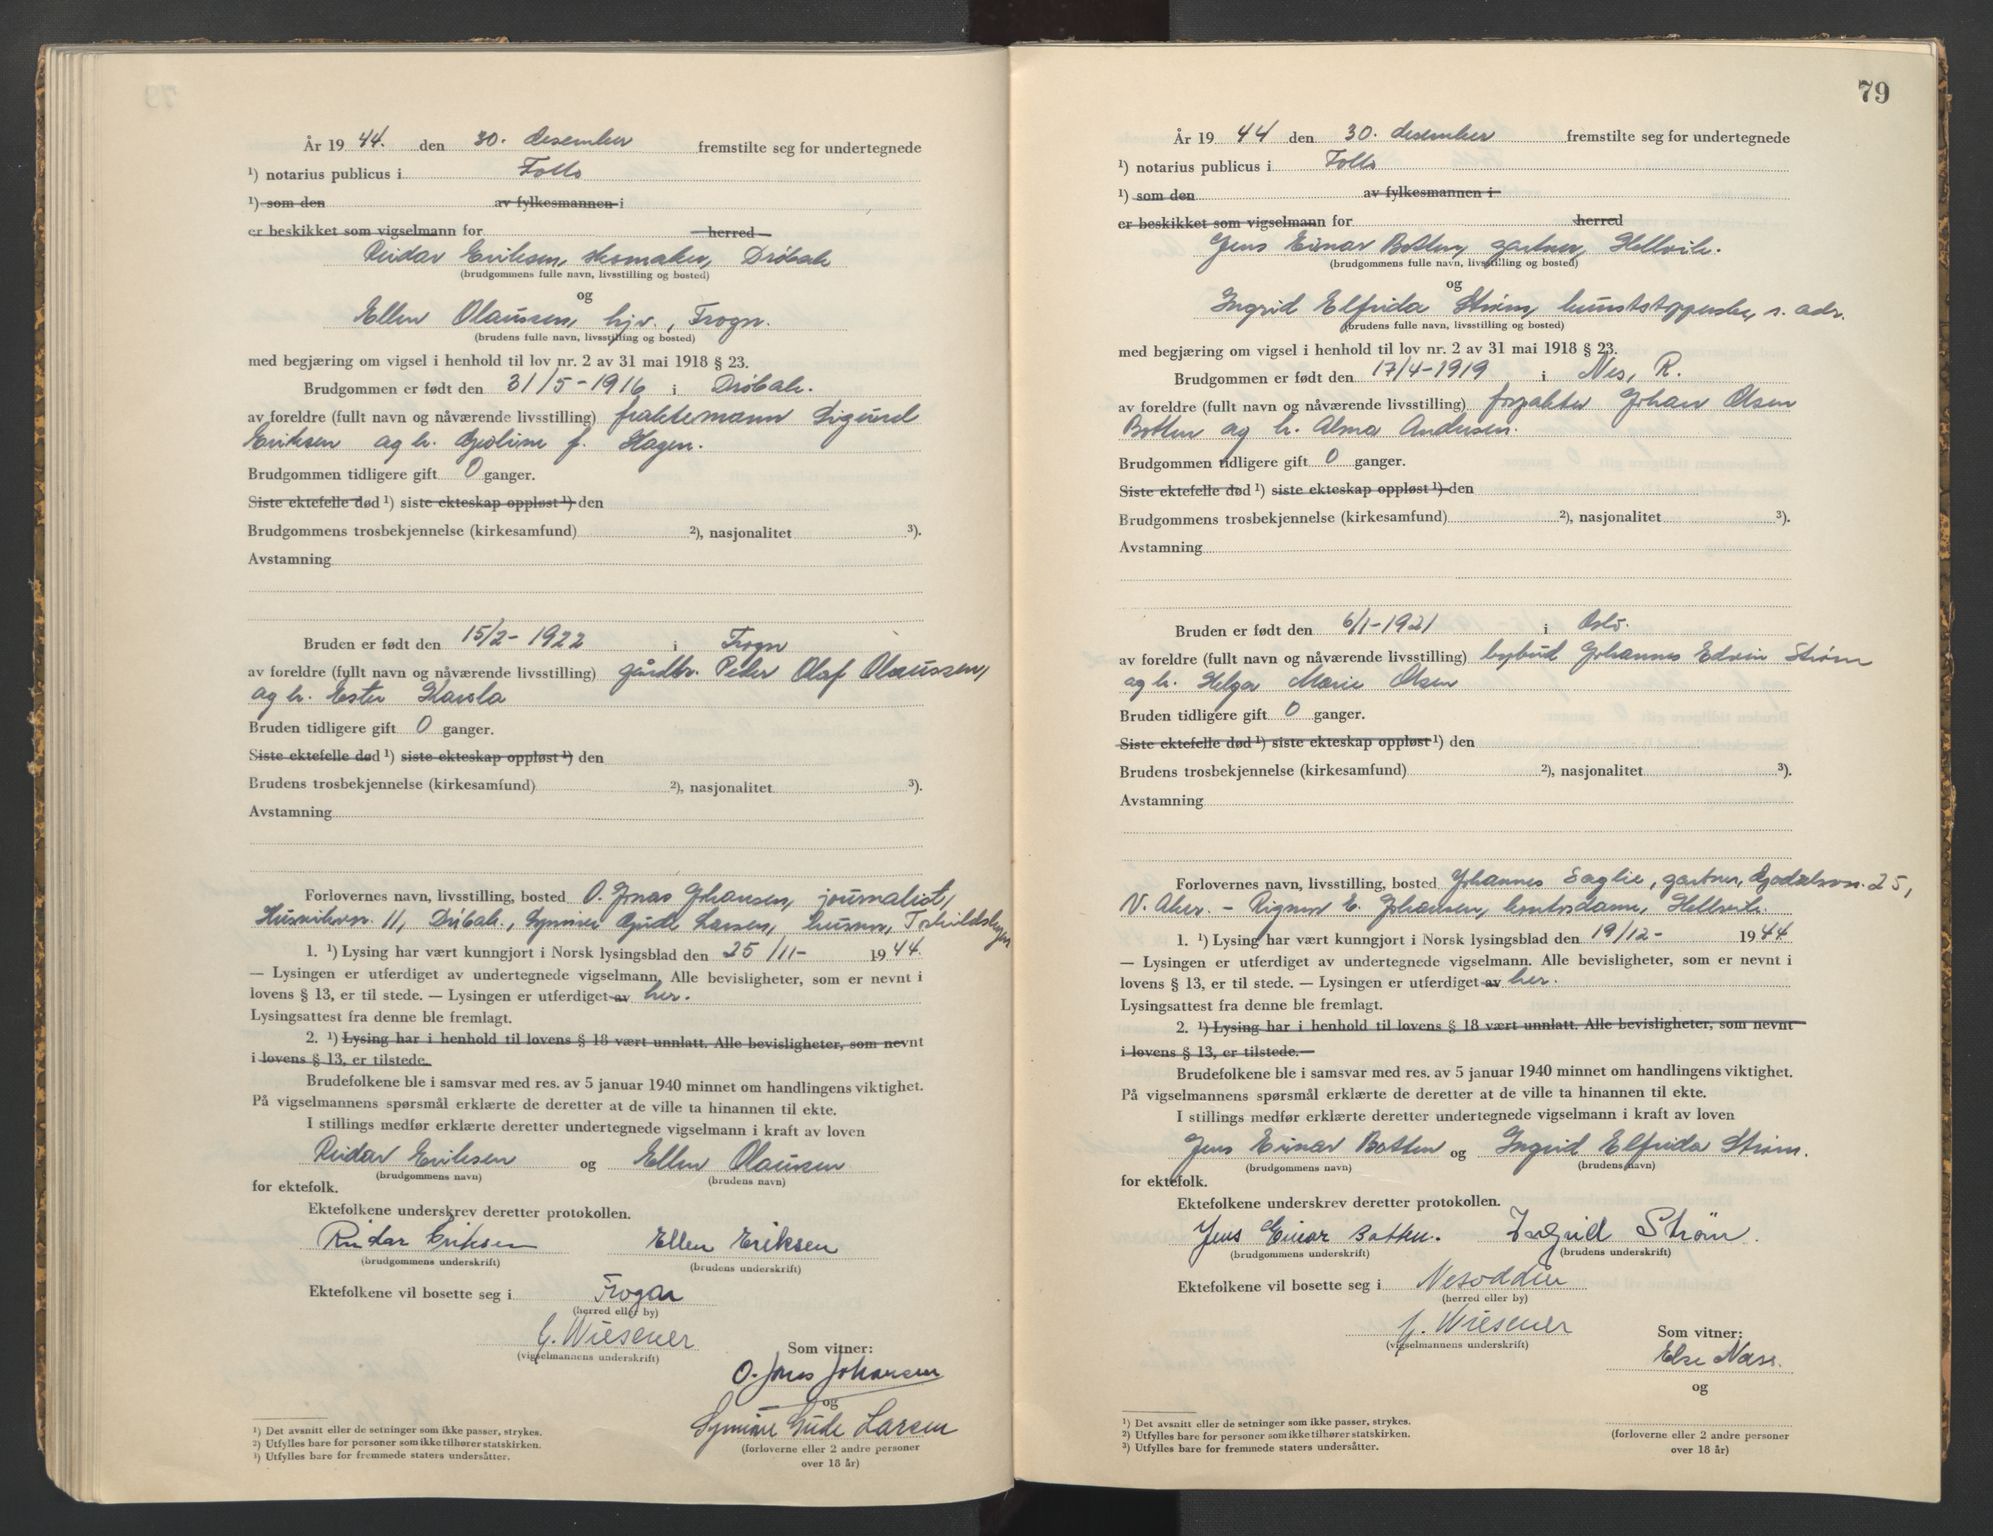 År 1944. den 30. desember fremstilte seg for undertegnede
¹) notarius publicus i Follo
¹) som den av fylkesmannen i
er beskikket som vigselmann for herred
Reidar Eriksen, skomaker, Drøbak
(brudgommens fulle navn, livsstilling og bosted)
og
Ellen Olaussen, hjv., Frogn.
(brudens fulle navn, livsstilling og bosted)
med begjæring om vigsel i henhold til lov nr. 2 av 31 mai 1918 § 23.
Brudgommen er født den 31/5-1916 i Drøbak.
av foreldre (fullt navn og nåværende livsstilling) fraktemann Sigurd
Eriksen og h. f. Hagen.
Brudgommen tidligere gift 0 ganger.
Siste ektefelle død ¹) siste ekteskap oppløst ¹) den
Brudgommens trosbekjennelse (kirkesamfund) ²), nasjonalitet ³).
Avstamning
Bruden er født den 15/2-1922 i Frogn
av foreldre (fullt navn og nåværende livsstilling) gårdbr. Peder Olaf Olaussen,
og h. Ester Karola
Bruden tidligere gift 0 ganger.
Siste ektefelle død ¹) siste ekteskap oppløst ¹) den
Brudens trosbekjennelse (kirkesamfund) ²), nasjonalitet ³).
Avstamning
Forlovernes navn, livsstilling, bosted O. Jonas Johansen, journalist,
11, Drøbak., Synnøve Gude Larsen, husmor,
1. ¹) Lysing har vært kunngjort i Norsk lysingsblad den 25/11- 1944.
— Lysingen er utferdiget av undertegnede vigselmann. Alle bevisligheter, som er nevnt i
lovens § 13, er til stede. — Lysingen er utferdiget av her.
Lysingsattest fra denne ble fremlagt.
2. ¹) Lysing har i henhold til lovens § 18 vært unnlatt. Alle bevisligheter, som nevnt
i lovens § 13, er tilstede.
Brudefolkene ble i samsvar med res. av 5 januar 1940 minnet om handlingens viktighet.
På vigselmannens spørsmål erklærte de deretter at de ville ta hinannen til ekte.
I stillings medfør erklærte deretter undertegnede vigselmann i kraft av loven
Reidar Eriksen og Ellen Olaussen
(brudgommens navn) (brudens navn)
for ektefolk.
Ektefolkene underskrev deretter protokollen.
Reidar Eriksen Ellen Eriksen
(brudgommens underskrift) (brudens underskrift)
Ektefolkene vil bosette seg i Frogn
(herred eller by)
G. Wiesener
(vigselmannens underskrift)
Som vitner:
O. Jonas Johansen
og
Synnøve Gude Larsen
(forloverne eller 2 andre personer
over 18 år)
¹) Det avsnitt eller de setninger som ikke passer, strykes.
²) Utfylles bare for personer som ikke tilhører statskirken.
³) Utfylles bare for fremmede staters undersåtter.
79
År 1944 den 30. desember fremstilte seg for undertegnede
¹) notarius publicus i Follo
¹) som den av fylkesmannen i
er beskikket som vigselmann for herred
Jens Einar Botten, gartner, Hellvik.
(brudgommens fulle navn, livsstilling og bosted)
og
Ingrid Elfrida Strøm, kunststopperske, s. adr.
(brudens fulle navn, livsstilling og bosted)
med begjæring om vigsel i henhold til lov nr. 2 av 31 mai 1918 § 23.
Brudgommen er født den 17/4-1919 i Nes, R.
av foreldre (fullt navn og nåværende livsstilling) forpakter Johan Olsen
Botten og h. Alma Andersen.
Brudgommen tidligere gift 0 ganger.
Siste ektefelle død ¹) siste ekteskap oppløst ¹) den
Brudgommens trosbekjennelse (kirkesamfund) ²), nasjonalitet ³).
Avstamning
Bruden er født den 6/1-1921 i Oslo.
av foreldre (fullt navn og nåværende livsstilling) bybud Johannes Edvin Strøm
og h. Helga Marie Olsen
Bruden tidligere gift 0 ganger.
Siste ektefelle død ¹) siste ekteskap oppløst ¹) den
Brudens trosbekjennelse (kirkesamfund) ²), nasjonalitet ³).
Avstamning
Forlovernes navn, livsstilling, bosted Johannes Saglie, gartner, 25,
V. Aker. – Rigmor E. Johansen, kontordame, Hellvik.
1. ¹) Lysing har vært kunngjort i Norsk lysingsblad den 19/12- 1944
— Lysingen er utferdiget av undertegnede vigselmann. Alle bevisligheter, som er nevnt i
lovens § 13, er til stede. — Lysingen er utferdiget av her.
Lysingsattest fra denne ble fremlagt.
2. ¹) Lysing har i henhold til lovens § 18 vært unnlatt. Alle bevisligheter, som nevnt
i lovens § 13, er tilstede.
Brudefolkene ble i samsvar med res. av 5 januar 1940 minnet om handlingens viktighet.
På vigselmannens spørsmål erklærte de deretter at de ville ta hinannen til ekte.
I stillings medfør erklærte deretter undertegnede vigselmann i kraft av loven
Jens Einar Botten og Ingrid Elfrida Strøm.
(brudgommens navn) (brudens navn)
for ektefolk.
Ektefolkene underskrev deretter protokollen.
Jens Einar Botten. Ingrid Strøm.
(brudgommens underskrift) (brudens underskrift)
Ektefolkene vil bosette seg i Nesodden
(herred eller by)
G. Wiesener
(vigselmannens underskrift)
Som vitner:
Else Næss.
og
(forloverne eller 2 andre personer
over 18 år)
¹) Det avsnitt eller de setninger som ikke passer, strykes.
²) Utfylles bare for personer som ikke tilhører statskirken.
³) Utfylles bare for fremmede staters undersåtter.